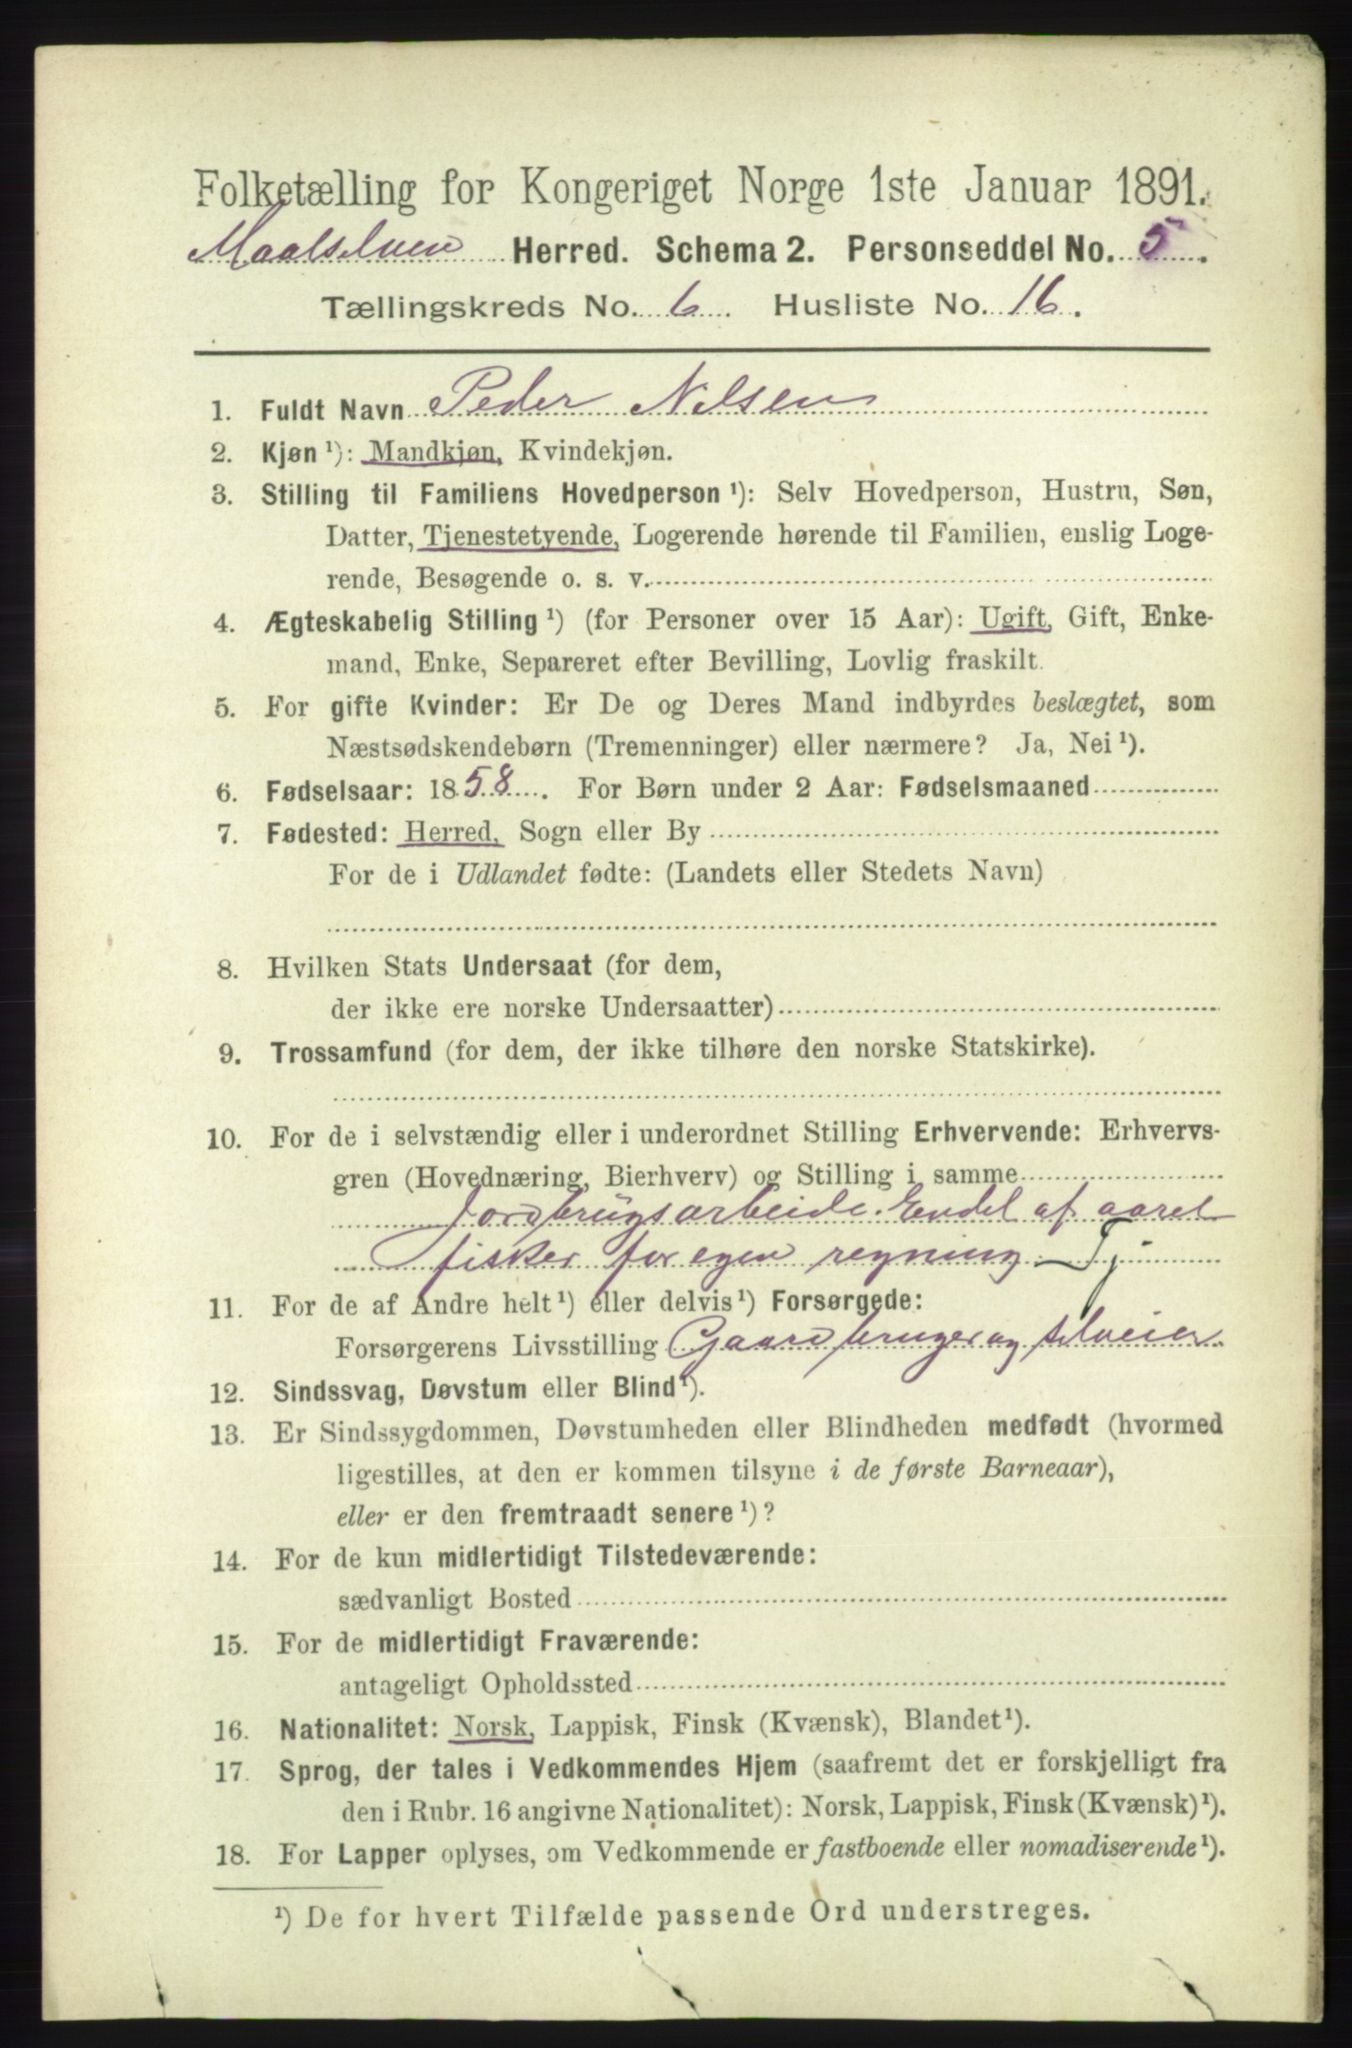 Folketælling for Kongeriget Norge 1ste Januar 1891.
Maalselven Herred. Schema 2. Personseddel No. 5.
Tællingskreds No. 6. Husliste No. 16.
1. Fuldt Navn Peder Nilsen
2. Kjøn ¹): Mandkjøn, Kvindekjøn.
3. Stilling til Familiens Hovedperson ¹): Selv Hovedperson, Hustru, Søn,
Datter, Tjenestetyende, Logerende hørende til Familien, enslig Loge-
rende, Besøgende o. s. v.
4. Ægteskabelig Stilling ¹) (for Personer over 15 Aar): Ugift, Gift, Enke-
mand, Enke, Separeret efter Bevilling, Lovlig fraskilt.
5. For gifte Kvinder: Er De og Deres Mand indbyrdes beslægtet, som
Næstsødskendebørn (Tremenninger) eller nærmere? Ja, Nei ¹).
6. Fødselsaar: 1858. For Børn under 2 Aar: Fødselsmaaned
7. Fødested: Herred, Sogn eller By
For de i Udlandet fødte: (Landets eller Stedets Navn)
8. Hvilken Stats Undersaat (for dem,
der ikke ere norske Undersaatter)
9. Trossamfund (for dem, der ikke tilhøre den norske Statskirke).
10. For de i selvstændig eller i underordnet Stilling Erhvervende: Erhvervs-
gren (Hovednæring, Bierhverv) og Stilling i samme
Jordbrugsarbeide. Endel af aaret
fisker for egen regning Tj
11. For de af Andre helt ¹) eller delvis ¹) Forsørgede:
Forsørgerens Livsstilling Gaardbruger og selveier
12. Sindssvag, Døvstum eller Blind ¹).
13. Er Sindssygdommen, Døvstumheden eller Blindheden medfødt (hvormed
ligestilles, at den er kommen tilsyne i de første Barneaar),
eller er den fremtraadt senere ¹)?
14. For de kun midlertidigt Tilstedeværende:
sædvanligt Bosted
15. For de midlertidigt Fraværende:
antageligt Opholdssted
16. Nationalitet: Norsk, Lappisk, Finsk (Kvænsk), Blandet ¹).
17. Sprog, der tales i Vedkommendes Hjem (saafremt det er forskjelligt fra
den i Rubr. 16 angivne Nationalitet): Norsk, Lappisk, Finsk (Kvænsk) ¹).
18. For Lapper oplyses, om Vedkommende er fastboende eller nomadiserende ¹).
¹) De for hvert Tilfælde passende Ord understreges.